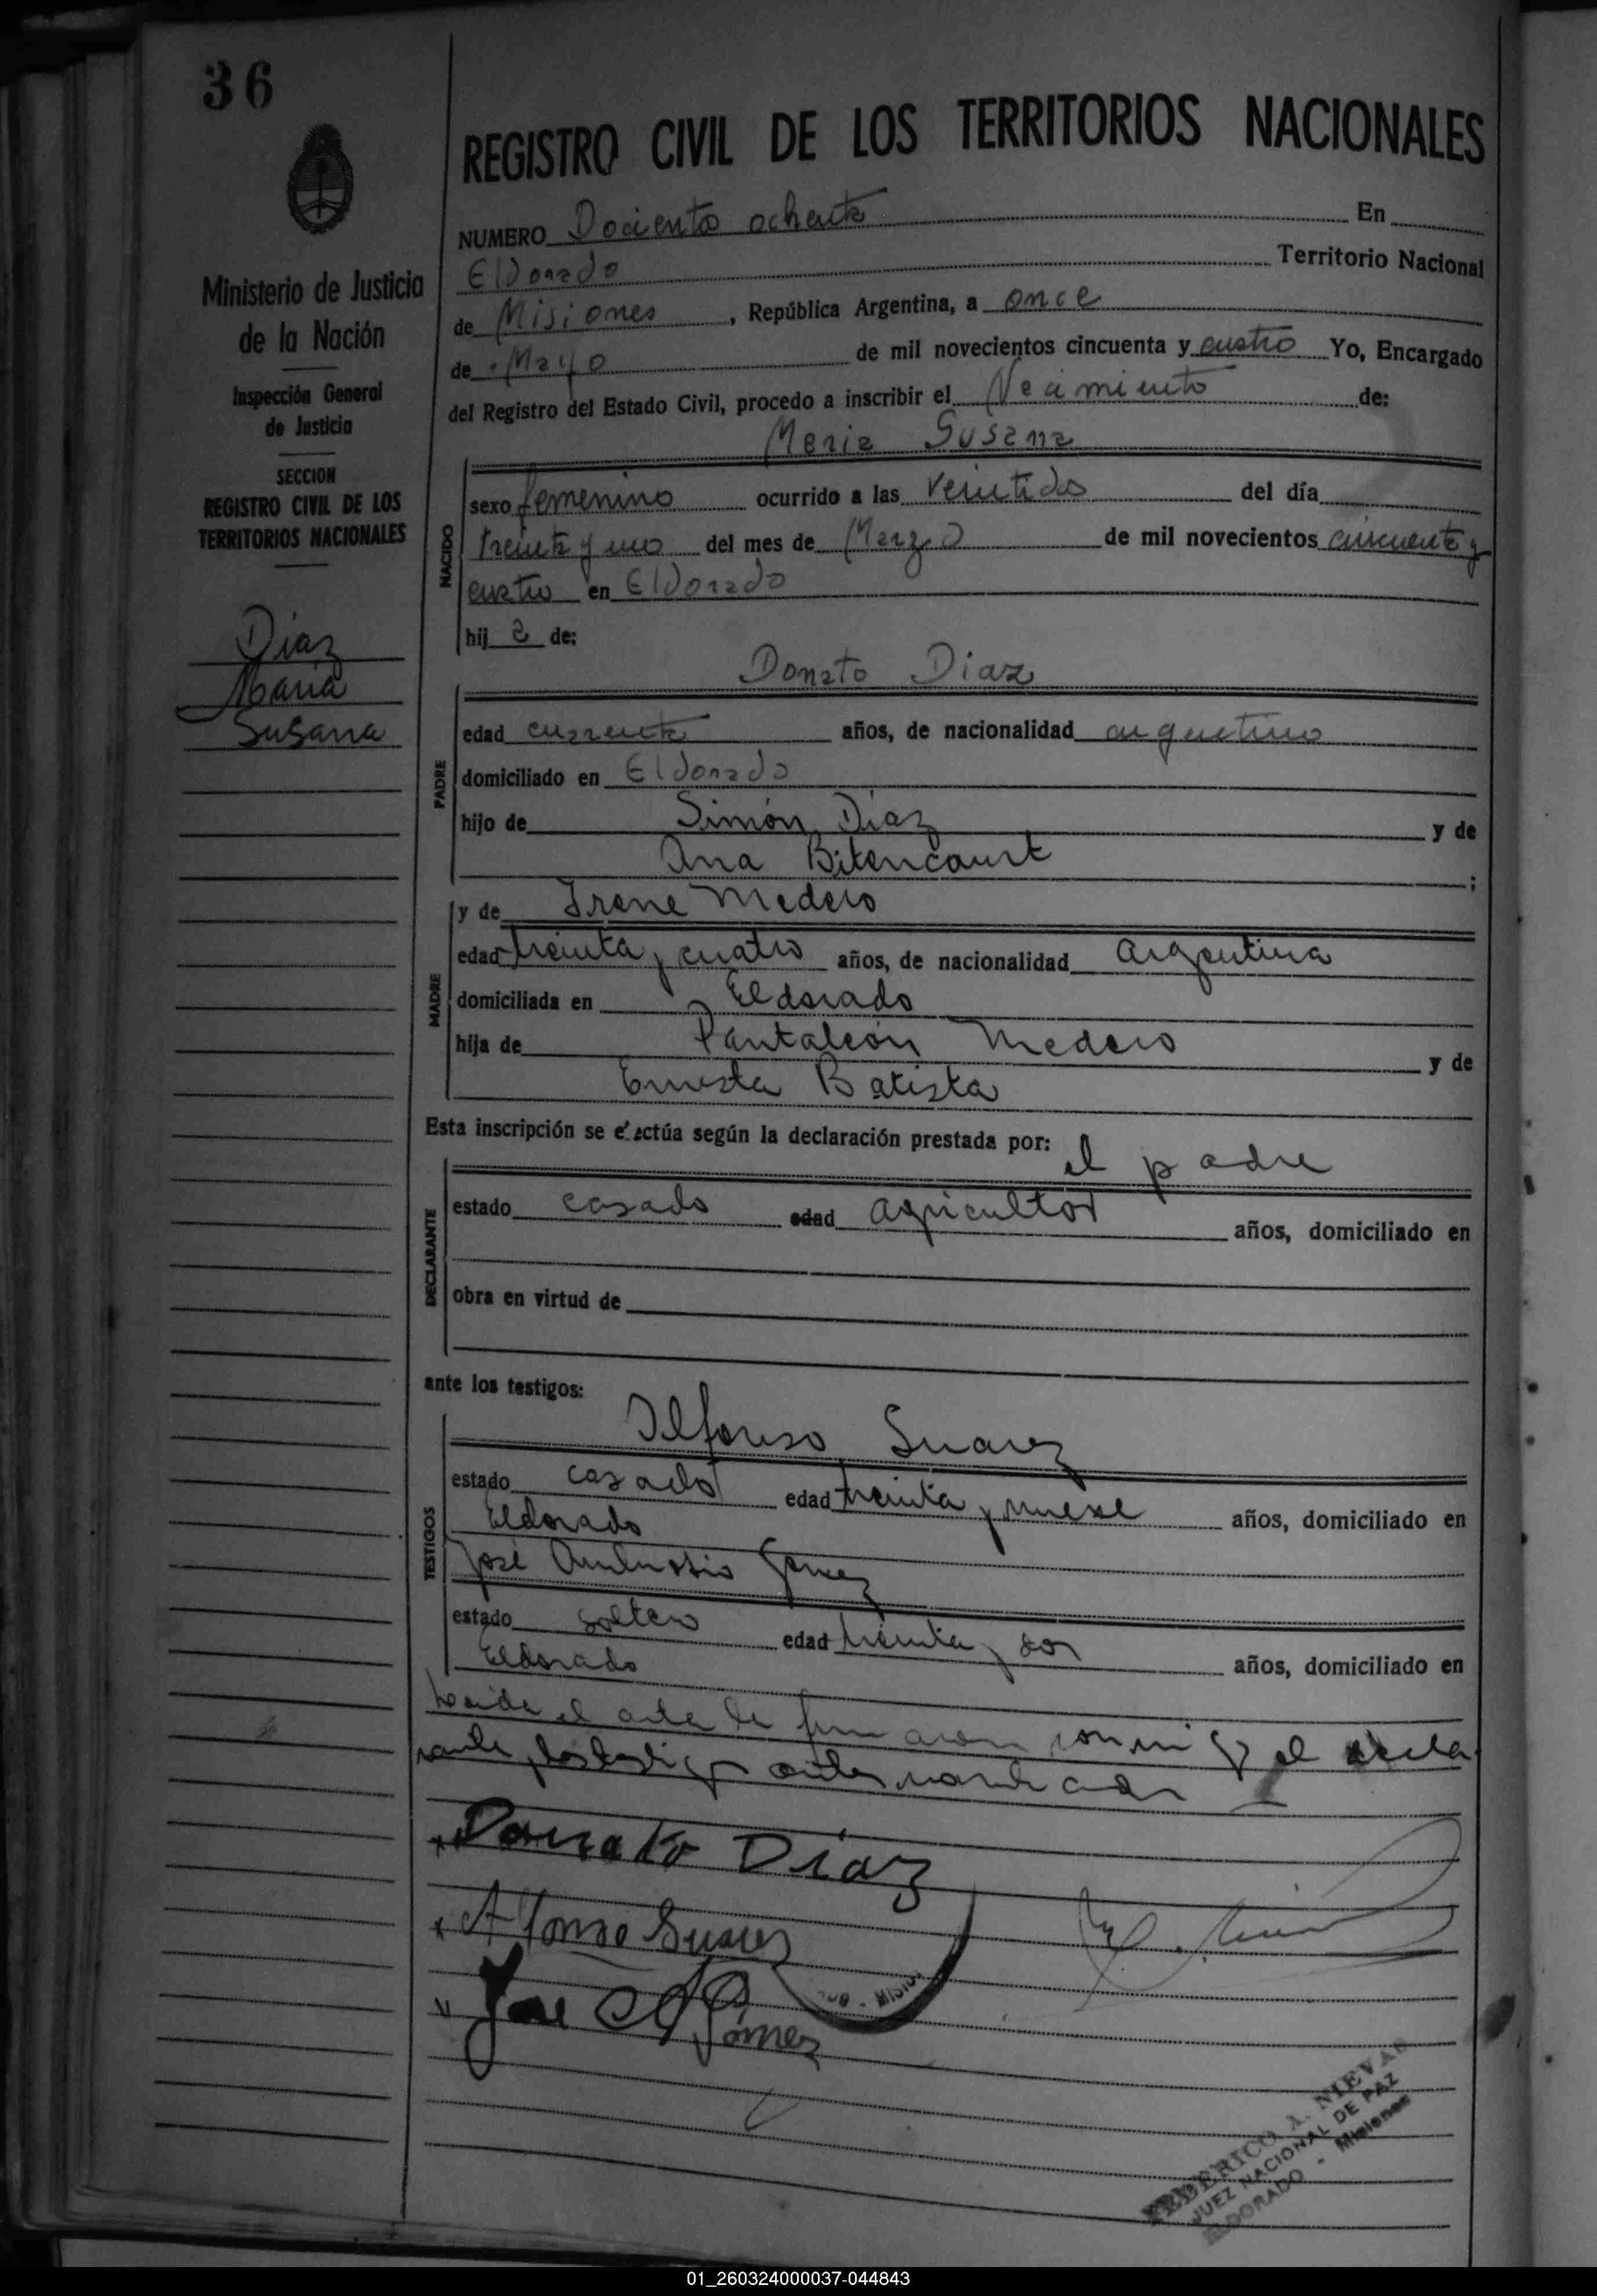 36
REGISTRO CIVIL DE LOS TERRITORIOS NACIONALES
Ministerio de Justicia
de la Nación
Inspección General
de Justicia
SECCION
REGISTRO CIVIL DE LOS
TERRITORIOS NACIONALES
Diaz
Maria
Susana
NUMERO Dociento ochenta En
Eldorado Territorio Nacional
de Misiones, República Argentina, a once
de Mayo de mil novecientos cincuenta y cuatro Yo, Encargado
del Registro del Estado Civil, procedo a inscribir el Nacimiento de:
Maria Susana
NACIDO
sexo femenino ocurrido a las veintidos del día
treinta y uno del mes de Marzo de mil novecientos cincuenta y
cuatro en Eldorado
hij a de:
Donato Diaz
PADRE
edad cuarenta años, de nacionalidad argentino
domiciliado en Eldorado
hijo de Simón Diaz y de
Ana Bitencourt ;
MADRE
y de Irene Medero
edad treinta y cuatro años, de nacionalidad Argentina
domiciliada en Eldorado
hija de Pantaleón Medero y de
Ernesta Batista
Esta inscripción se efectúa según la declaración prestada por: el padre
DECLARANTE
estado casado edad agricultor años, domiciliado en
obra en virtud de
ante los testigos:
TESTIGOS
Ilfonso Suarez
estado casado edad treinta y nueve años, domiciliado en
Eldorado
José Ambrosio Gomez
estado soltero edad treinta y dos años, domiciliado en
Eldorado
el acta la firmaron conmigo el decla
rante y los testigos antes nombrados
Donato Diaz
Alfonso Suarez
Jose A Gómez
MISIO
FEDERICO A. NIEVAS
JUEZ NACIONAL DE PAZ
ELDORADO - Misiones
01_260324000037-044843